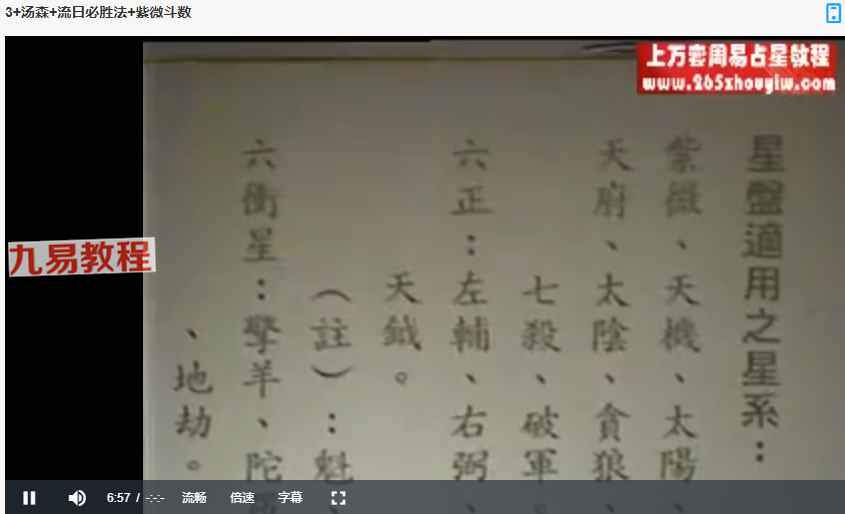 3+汤森+流日必胜法+紫微斗数
上万套周易占星教程
www.265zhouyiw.com
九易教程
星盤適用之星系：
紫微、天機、太陽、
天府、太陰、貪狼、
七殺、破軍
六正：左輔、右弼、
天鉞。
（註）：魁、
六衝星：擎羊、陀
、地劫。
6:57 / -:-:-
流畅
倍速
字幕